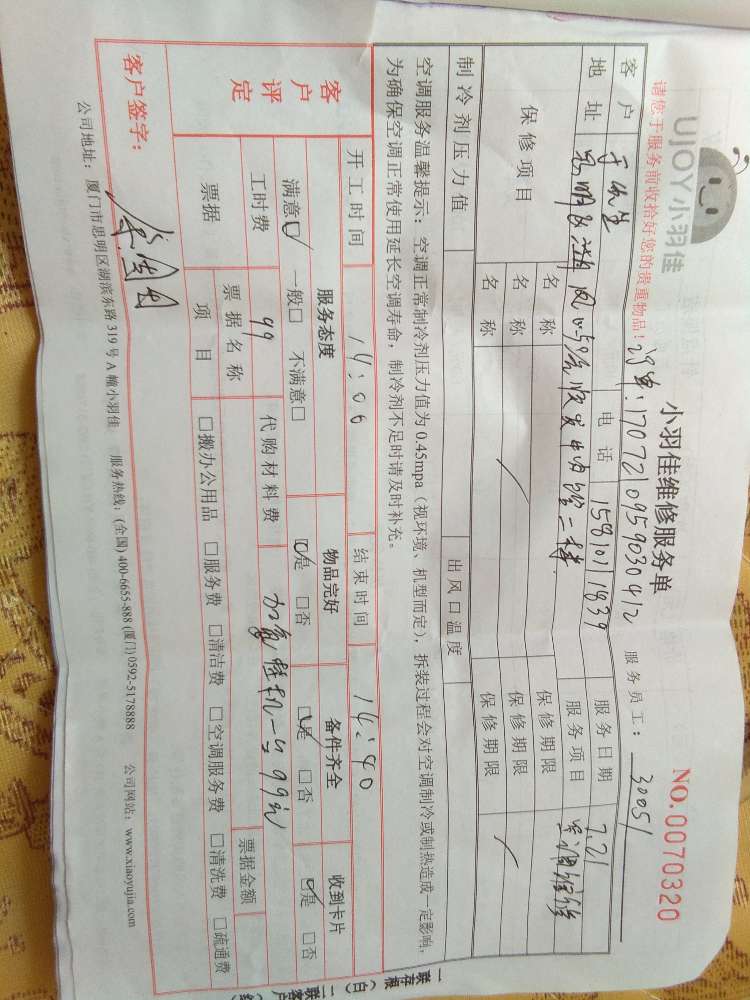 UJOY小羽佳
小羽佳维修服务单
NO.0070320
请您于服务前收拾好您的贵重物品!
订单:1707210959030412
服务员工: 30051
客户 电话 15810111839 服务日期 7.21
地址 服务项目 空调维修
保修项目 名称 / 保修期限 /
名称 保修期限
名称 保修期限
制冷剂压力值 出风口温度
空调服务温馨提示:空调正常制冷剂压力值为0.45mpa(视环境、机型而定),拆装过程会对空调制冷或制热造成一定影响,
为确保空调正常使用延长空调寿命,制冷剂不足时请及时补充。
客户评定
开工时间 14:06 结束时间 14:40
服务态度 物品完好 备件齐全 收到卡片
满意☑ 一般□ 不满意□ ☑是 □否 ☑是 □否 ☑是 □否
工时费 99 代购材料费 加氟挂机一台99元
票据 票据名称 票据金额
项目 □搬办公用品 □服务费 □清洁费 □空调服务费 □清洗费 □疏通费
客户签字:
公司地址:厦门市思明区湖滨东路319号A幢小羽佳 服务热线:(全国)400-6655-888 (厦门)0592-5178888 公司网站:www.xiaoyujia.com
一联存根(白)二联客户(红)